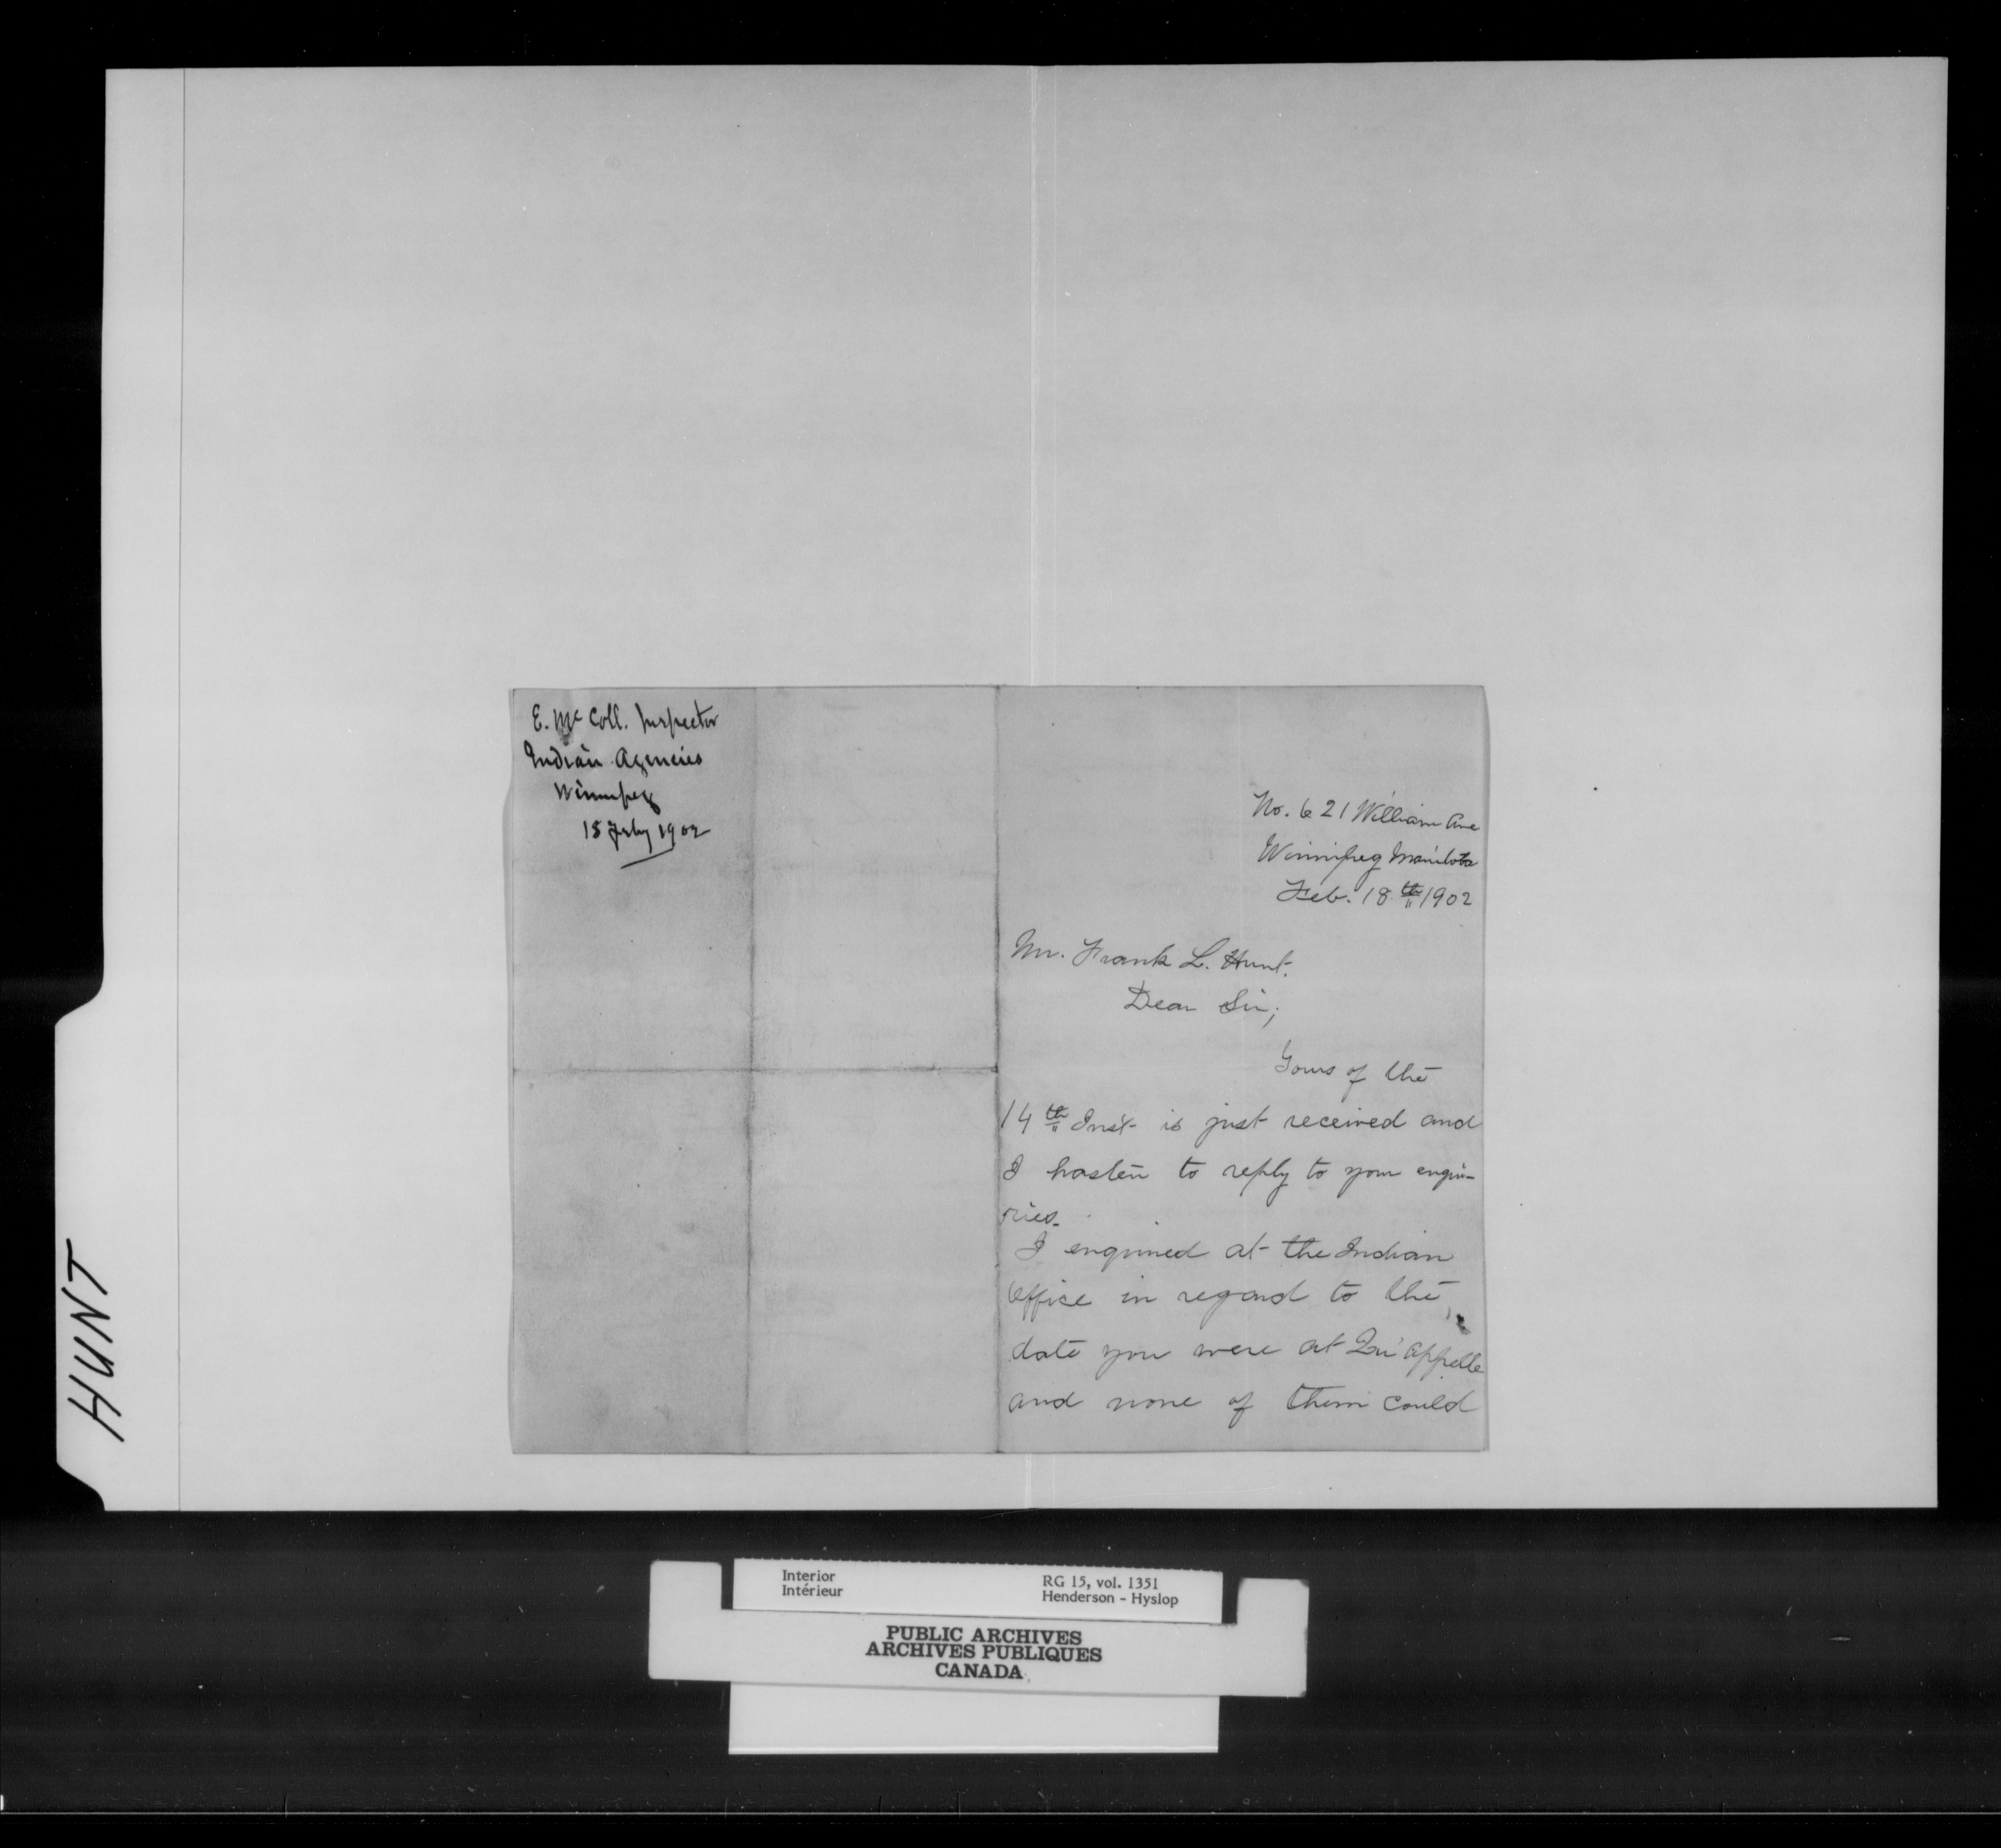 E. Mc Coll. Inspector
Indian Agencies
Winnipeg
18 Feby 1902
No. 621 William Ave
Winnipeg Manitoba
Feb. 18th 1902
Mr. Frank L. Hunt.
Dear Sir;
Yours of the
14th Inst is just received and
I hasten to reply to your enqui-
ries.
I enquired at the Indian
Office in regard to the
date you were at Qu'Appelle
and none of them could
HUNT
Interior
Intérieur
RG 15, vol. 1351
Henderson - Hyslop
PUBLIC ARCHIVES
ARCHIVES PUBLIQUES
CANADA